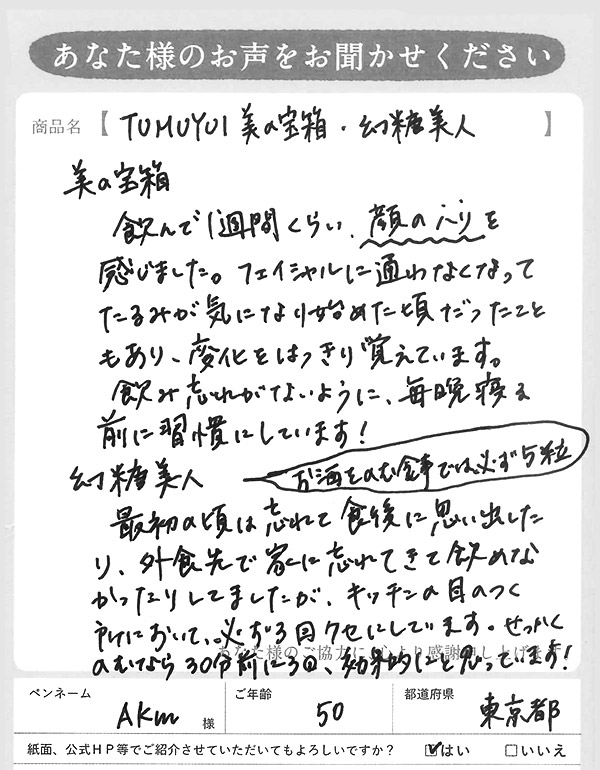 あなた様のお声をお聞かせください
商品名【TUMUYUI 美の宝箱・幻糖美人】
美の宝箱
飲んで1週間くらい、顔のハリを
感じました。フェイシャルに通わなくなって
たるみが気になり始めた頃だったこと
もあり、変化をはっきり覚えています。
飲み忘れがないように、毎晩寝る
前に習慣にしています!
幻糖美人
お酒をのむ食事では必ず5粒
最初の頃は忘れて食後に思い出した
り、外食先で家に忘れてきて飲めな
かったりしてましたが、キッチンの目のつく
所において、必ず3回クセにしています。せっかく
のむなら30分前に3回、効果的にと思っています!
あなた様のご協力に、心より感謝申し上げます
ペンネーム AKm 様
ご年齢 50
都道府県 東京都
紙面、公式HP等でご紹介させていただいてもよろしいですか? ☑はい □いいえ